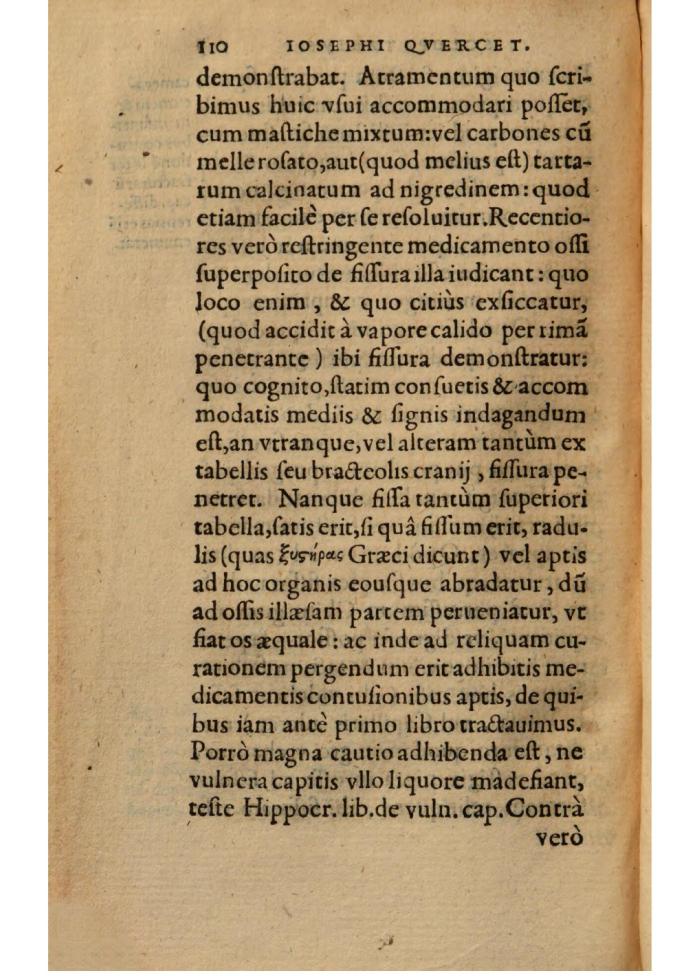 110 IOSEPHI QVERCET.
demonſtrabat. Atramentum quo ſcri-
bimus huic vſui accommodari poſſet,
cum maſtiche mixtum: vel carbones cũ
melle roſato, aut (quod melius eſt) tarta-
rum calcinatum ad nigredinem: quod
etiam facilè per ſe reſoluitur. Recentio-
res verò reſtringente medicamento oſſi
ſuperpoſito de fiſſura illa iudicant: quo
loco enim, & quo citiùs exſiccatur,
(quod accidit à vapore calido per rimã
penetrante) ibi fiſſura demonſtratur:
quo cognito, ſtatim conſuetis & accom
modatis mediis & ſignis indagandum
eſt, an vtranque, vel alteram tantùm ex
tabellis ſeu bracteolis cranij, fiſſura pe-
netret. Nanque fiſſa tantùm ſuperiori
tabella, ſatis erit, ſi quâ fiſſum erit, radu-
lis (quas ξυϛήρας Græci dicunt) vel aptis
ad hoc organis eouſque abradatur, dũ
ad oſſis illæſam partem perueniatur, vt
fiat os æquale: ac inde ad reliquam cu-
rationem pergendum erit adhibitis me-
dicamentis contuſionibus aptis, de qui-
bus iam antè primo libro tractauimus.
Porrò magna cautio adhibenda eſt, ne
vulnera capitis vllo liquore madefiant,
teſte Hippocr. lib. de vuln. cap. Contrà
verò